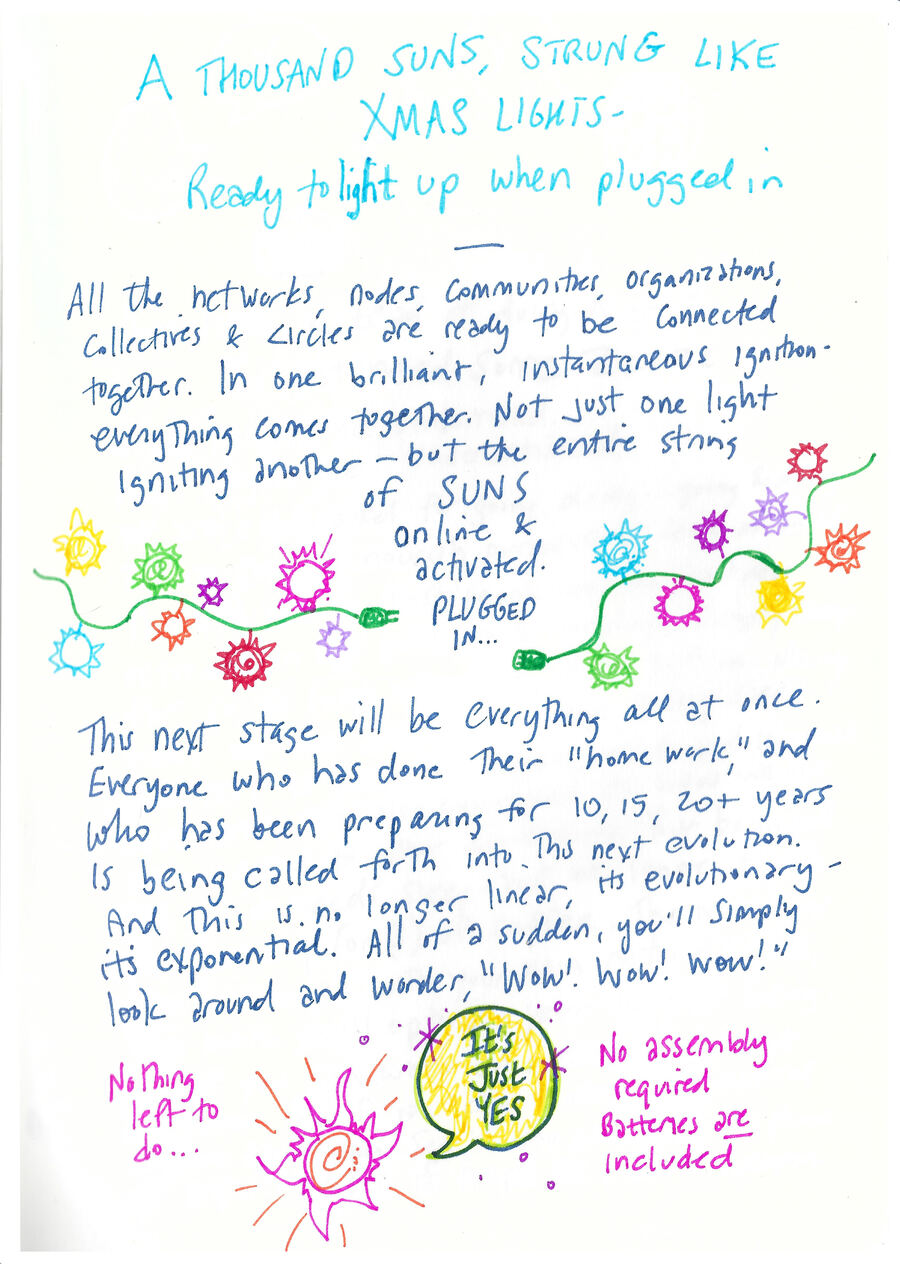 A THOUSAND SUNS, STRUNG LIKE
XMAS LIGHTS-
Ready to light up when plugged in
All the networks, nodes, communities, organizations,
Collectives & circles are ready to be connected
together. In one brilliant, instantaneous ignition-
everything comes together. Not just one light
igniting another - but the entire string
of SUNS
online &
activated.
PLUGGED
IN...
This next stage will be everything all at once.
Everyone who has done their "home work," and
who has been preparing for 10, 15, 20+ years
is being called forth into this next evolution.
And this is no longer linear, its evolutionary -
its exponential. All of a sudden, you'll simply
look around and wonder, "Wow! Wow! Wow!"
It's
Just
YES
Nothing
left to
do...
No assembly
required
Batteries are
included